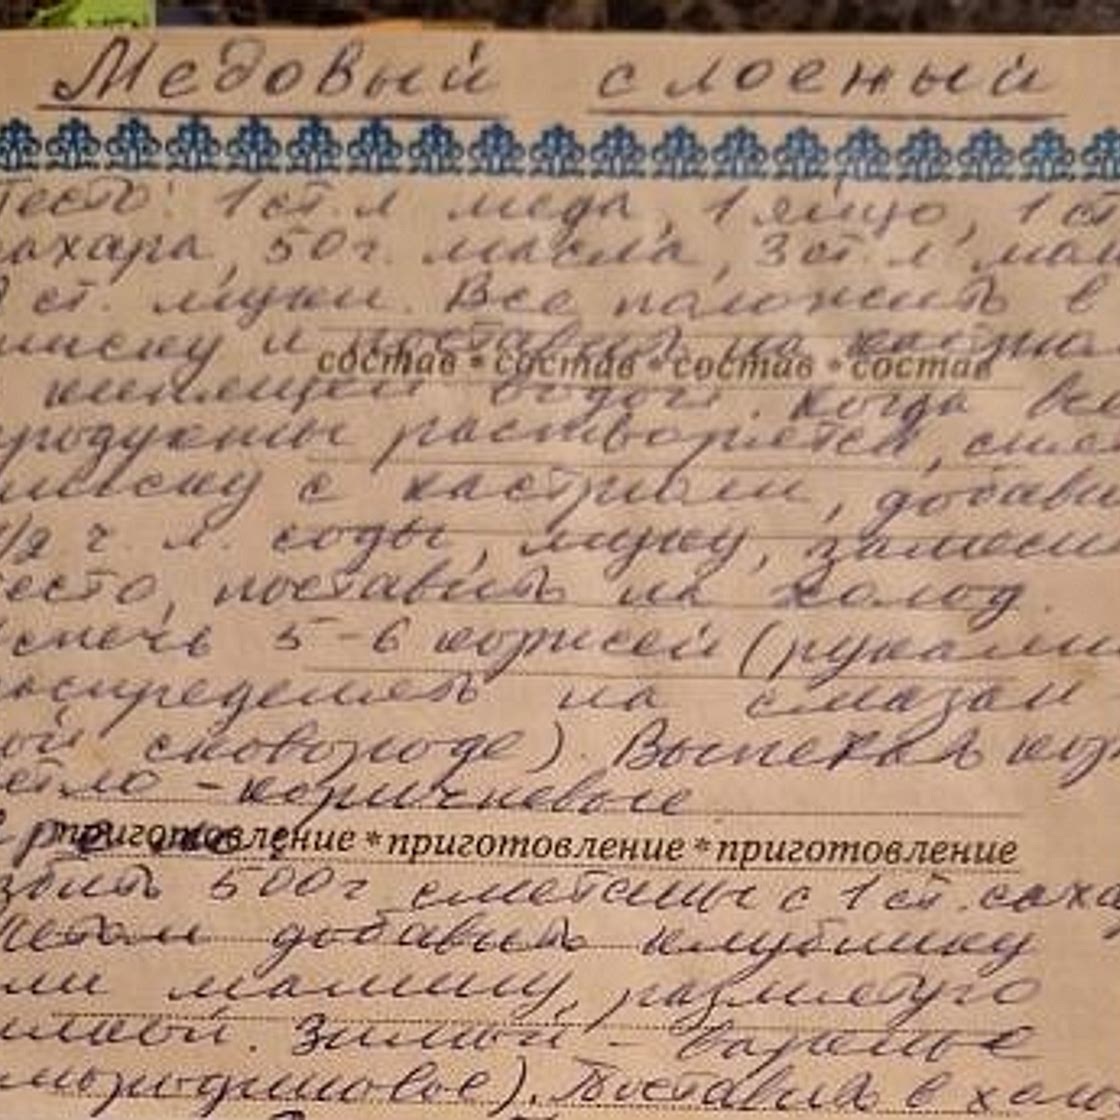 Медовый слоеный
Тесто: 1 ст. л меда, 1 яйцо, 1 ст
сахара, 50 г. масла, 3 ст. л
ст. муки. Все положить в
миску и поставить на
кипящей водой. Когда все
продукты растворятся,
состав * состав * состав * состав
миску с кастрюли, добави
1/2 ч. л. соды, муку, замеси
тесто, поставить на холод.
Испечь 5-6 коржей (руками
распределять на смазан
ной сковороде). Выпекать кор
светло-коричневые
приготовление * приготовление * приготовление
збить 500 г сметаны с 1 ст. саха
Летом добавить клубнику
или малину, размятую
вилкой. Зимой - варенье
смородиновое). Поставить в хол